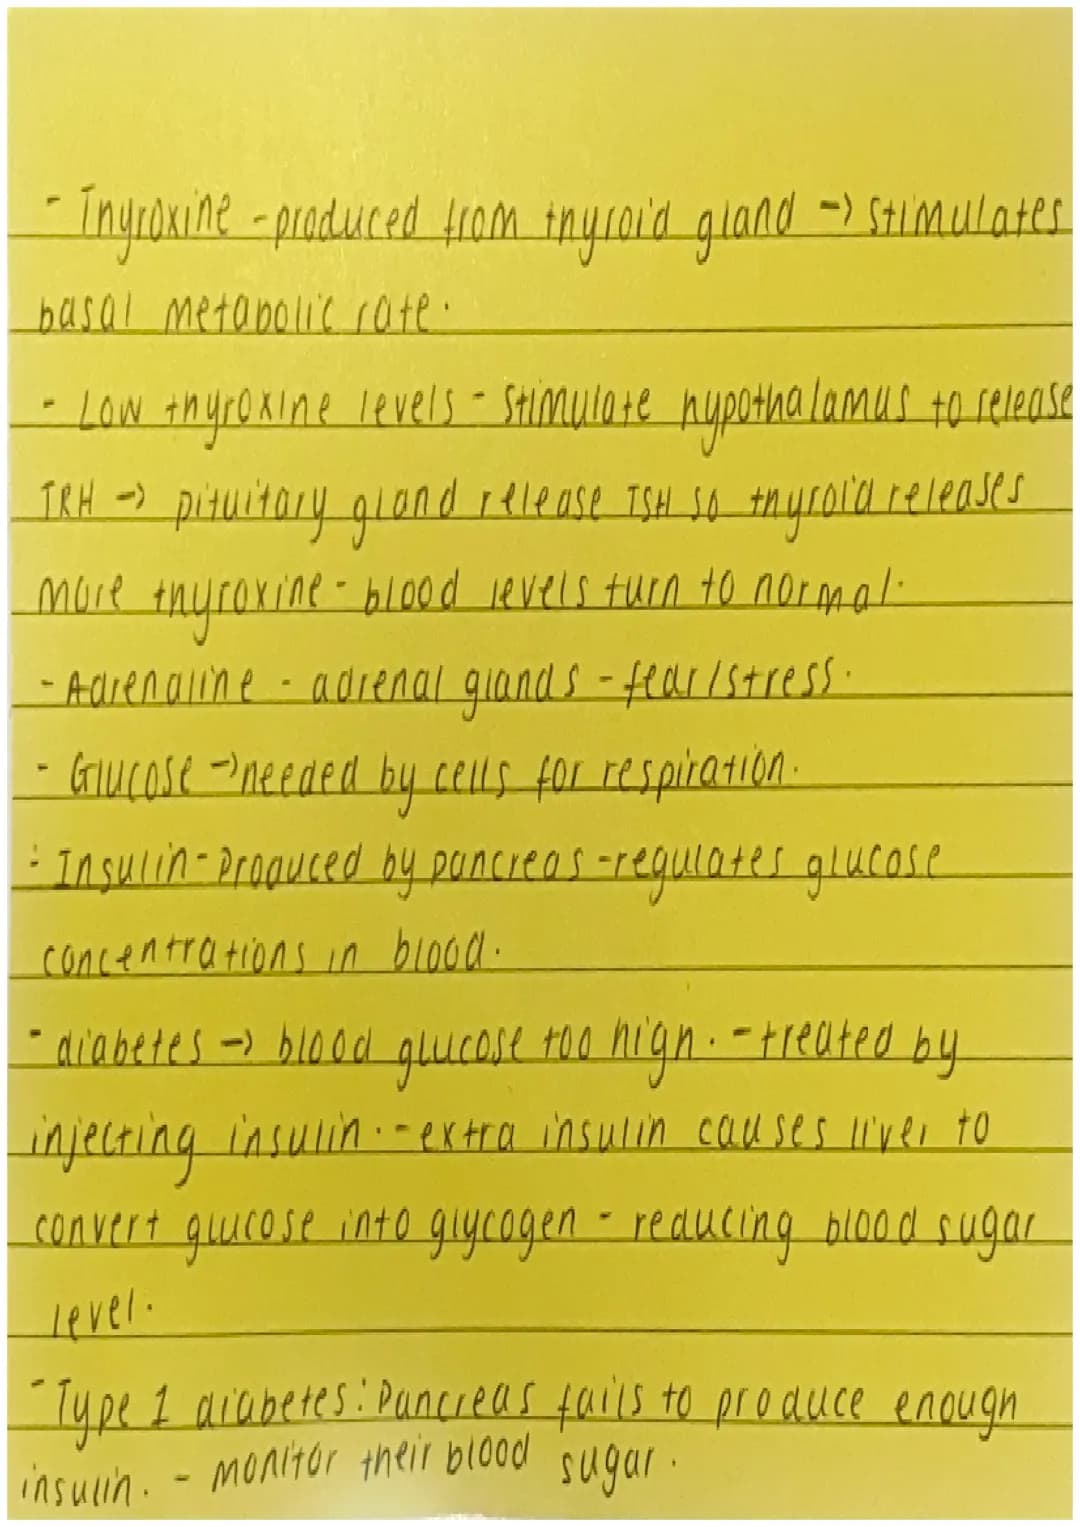 - Thyroxine - produced from thyroid gland -> stimulates
basal metabolic rate.
- Low thyroxine levels - stimulate hypothalamus to release
TRH -> pituitary gland release TSH so thyroid releases
more thyroxine - blood levels turn to normal.
- Adrenaline - adrenal glands - fear/stress.
- Glucose -> needed by cells for respiration.
- Insulin - Produced by pancreas - regulates glucose
concentrations in blood.
- diabetes -> blood glucose too high. - treated by
injecting insulin. - extra insulin causes liver to
convert glucose into glycogen - reducing blood sugar
level.
- Type 1 diabetes: Pancreas fails to produce enough
insulin. - monitor their blood sugar.